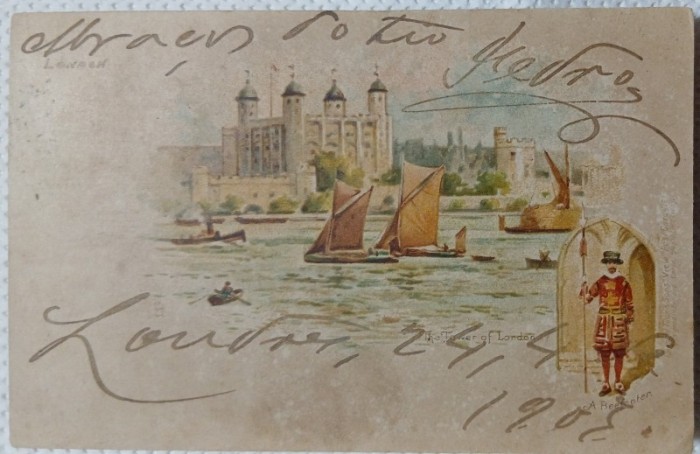 Abraços do tio Pedro
LONDON
The Tower of London
Londres, 24, 4
1903.
A Beefeater